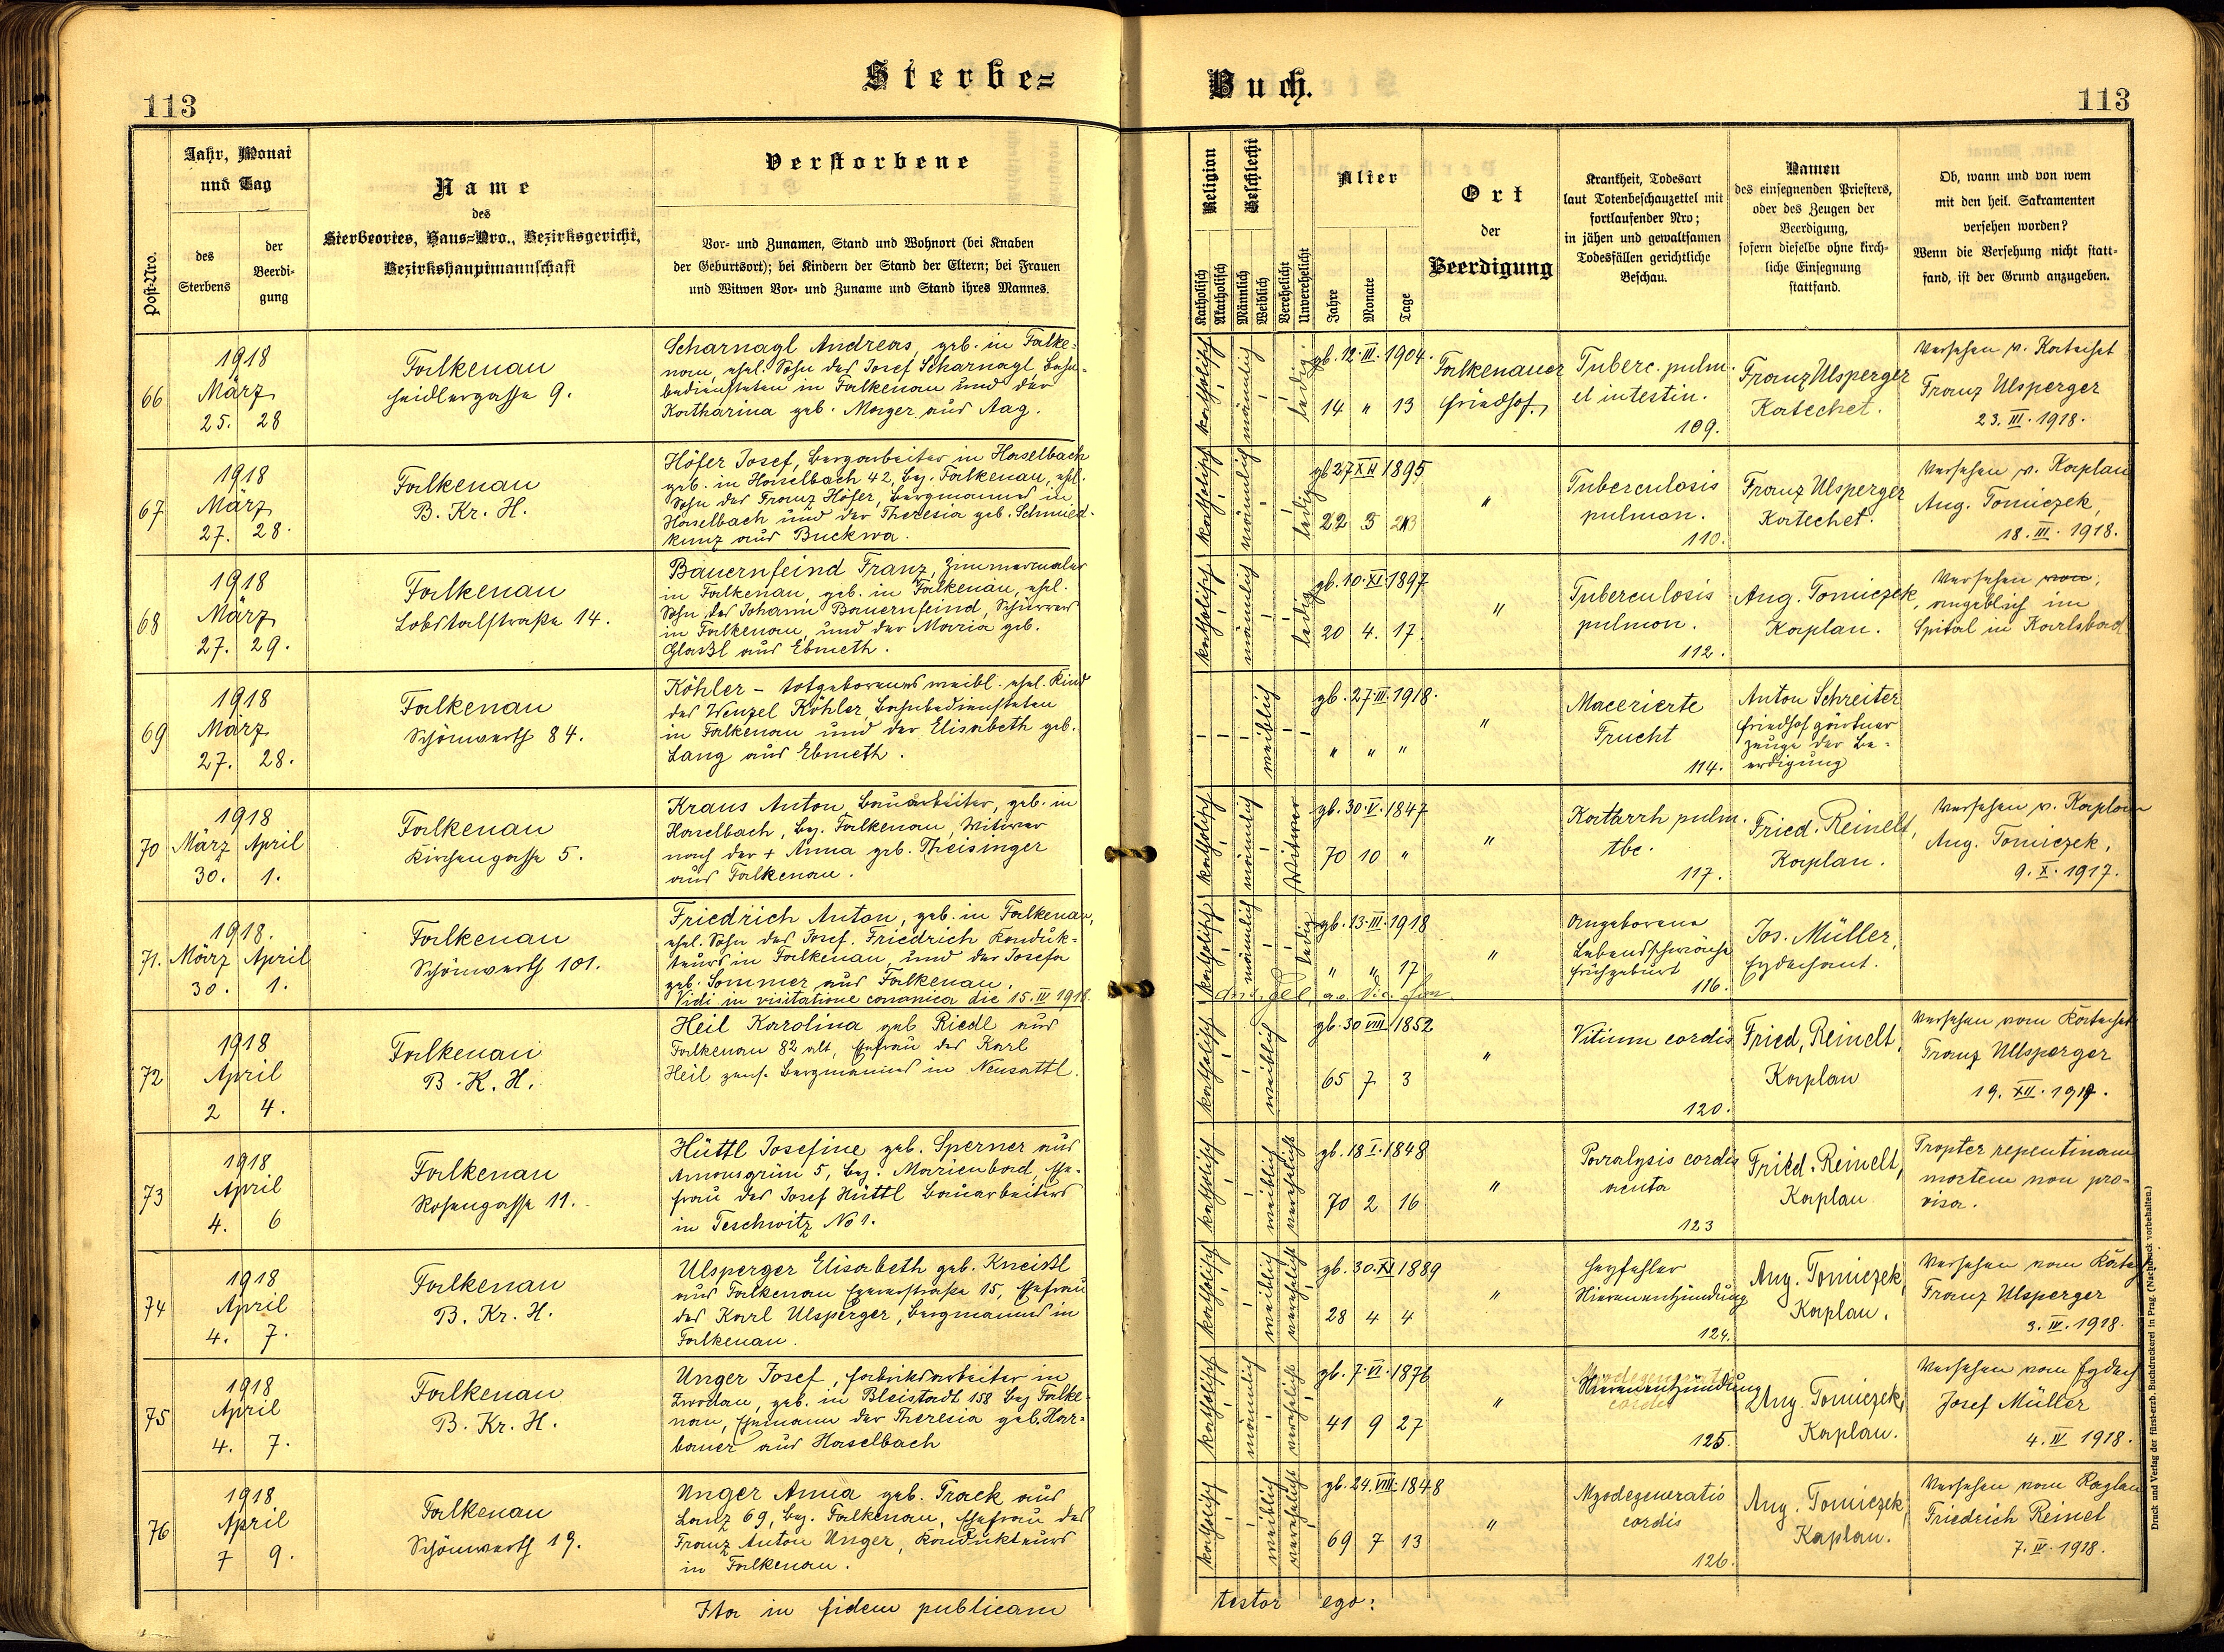 Sterbe=
Buch.
113
113
Post-Nro.
Jahr, Monat
und Tag
des
Sterbens
der
Beerdi-
gung
Name
des
Sterbeortes, Haus=Nro., Bezirksgericht,
Bezirkshauptmannschaft
Verstorbene
Vor- und Zunamen, Stand und Wohnort (bei Knaben
der Geburtsort); bei Kindern der Stand der Eltern; bei Frauen
und Witwen Vor- und Zuname und Stand ihres Mannes.
Religion
Katholisch
Akatholisch
Geschlecht
Männlich
Weiblich
Verehelicht
Unverehelicht
Alter
Jahre
Monate
Tage
Ort
der
Beerdigung
Krankheit, Todesart
laut Totenbeschauzettel mit
fortlaufender Nro;
in jähen und gewaltsamen
Todesfällen gerichtliche
Beschau.
Namen
des einsegnenden Priesters,
oder des Zeugen der
Beerdigung,
sofern dieselbe ohne kirch-
liche Einsegnung
stattfand.
Ob, wann und von wem
mit den heil. Sakramenten
versehen worden?
Wenn die Versehung nicht statt-
fand, ist der Grund anzugeben.
66
1918
März
25. 28
Falkenau
Seidlergasse 9.
Scharnagl Andreas, geb. in Falke=
nau, ehel. Sohn des Josef Scharnagl, Bahn=
bediensteten in Falkenau und der
Katharina geb. Mayer aus Aag.
katholisch
männlich
ledig
gb. 12. III. 1904.
14 " 13
Falkenauer
Friedhof.
Tuberc. pulm.
et intestin.
109.
Franz Ulsperger
Katechet.
Versehen v. Katechet
Franz Ulsperger
23. III. 1918.
67
1918
März
27. 28.
Falkenau
B. Kr. H.
Höfer Josef, Bergarbeiter in Haselbach
geb. in Haselbach 42, Bez. Falkenau, ehel.
Sohn des Franz Höfer, Bergmannes in
Haselbach und der Theresia geb. Schmied-
kunz aus Buckwa.
katholisch
männlich
ledig
gb 27 XII 1895
22 3
"
Tuberculosis
pulmon.
110.
Franz Ulsperger
Katechet.
Versehen v. Kaplan
Aug. Tomiczek,
18. III. 1918.
68
1918
März
27. 29.
Falkenau
Lobstalstraße 14.
Bauernfeind Franz, Zimmermaler
in Falkenau, geb. in Falkenau, ehel.
Sohn des Johann Bauernfeind,
in Falkenau, und der Maria geb.
Glaßl aus Ebmeth.
katholisch
männlich
ledig
gb. 10. XI. 1897
20 4. 17.
"
Tuberculosis
pulmon.
112.
Aug. Tomiczek,
Kaplan.
Versehen von,
angeblich im
Spital in Karlsbad
69
1918
März
27. 28.
Falkenau
Schönwerth 84.
Köhler - totgeborenes weibl. ehel. Kind
des Wenzel Köhler, Bahnbediensteten
in Falkenau und der Elisabeth geb.
Lang aus Ebmeth.
weiblich
gb. 27. III. 1918.
" " "
"
Macerierte
Frucht
114.
Anton Schreiter
Friedhofgärtner
Zeuge der Be=
erdigung
70
1918
März April
30. 1.
Falkenau
Kirchengasse 5.
Kraus Anton, Bauarbeiter, geb. in
Haselbach, Bez. Falkenau, Witwer
nach der + Anna geb. Theisinger
aus Falkenau.
katholisch
männlich
Witwer
gb. 30. V. 1847
70 10 "
"
Katarrh pulm.
tbc.
117.
Fried. Reinelt,
Kaplan.
Versehen v. Kaplan
Aug. Tomiczek,
9. X. 1917.
71.
1918.
März April
30. 1.
Falkenau
Schönwerth 101.
Friedrich Anton, geb. in Falkenau,
ehel. Sohn des Josef Friedrich Konduk=
teurs in Falkenau und der Josefa
geb. Sommer aus Falkenau.
Vidi in visitatione canonica die 15. IV 1918.
katholisch
männlich
ledig
gb. 13. III. 1918
" " 17
"
Angeborene
Lebensschwäche
Frühgeburt
116.
Jos. Müller,
Erzdechant.
72
1918
April
2 4.
Falkenau
B. K. H.
Heil Karolina geb Riedl aus
Falkenau 82 alt, Ehefrau des Karl
Heil pens. Bergmannes in Neusattl.
katholisch
weiblich
gb. 30 VIII 1852
65 7 3
"
Vitium cordis
120.
Fried. Reinelt,
Kaplan
Versehen vom Katechet
Franz Ullsperger
19. XII. 1917.
73
1918
April
4. 6
Falkenau
Rosengasse 11.
Hüttl Josefine geb. Sperner aus
Amonsgrün 5, Bez. Marienbad, Ehe-
frau des Josef Hüttl Bauarbeiters
in Teschwitz No 1.
katholisch
weiblich
verehelicht
gb. 18 I. 1848
70 2 16
"
Paralysis cordis
acuta
123
Fried. Reinelt,
Kaplan
Propter repentinam
mortem non pro-
visa.
74
1918
April
4. 7.
Falkenau
B. Kr. H.
Ulsperger Elisabeth geb. Kneißl
aus Falkenau Egererstraße 15, Ehefrau
des Karl Ulsperger, Bergmanns in
Falkenau.
katholisch
weiblich
verehelicht
gb. 30. XI 1889
28 4 4
"
Herzfehler
Nierenentzündung
124.
Aug. Tomiczek,
Kaplan.
Versehen vom
Franz Ulsperger
3. IV. 1918.
75
1918
April
4. 7.
Falkenau
B. Kr. H.
Unger Josef, Fabriksarbeiter in
Zwodau, geb. in Bleistadt 158 Bez Falke-
nau, Ehemann der Theresia geb. Har=
bauer aus Haselbach
katholisch
männlich
verehelicht
gb. 7. VI. 1876
41 9 27
"
Nierenentzündung
125.
Aug. Tomiczek,
Kaplan.
Versehen vom Erzdech
Josef Müller
4. IV 1918.
76
1918
April
7 9.
Falkenau
Schönwerth 19.
Unger Anna geb. Track aus
Lanz 69, Bez. Falkenau, Ehefrau des
Franz Anton Unger, Kondukteurs
in Falkenau.
katholisch
weiblich
verehelicht
gb. 24. VIII. 1848
69 7 13
"
Myodegeneratio
cordis
126.
Aug. Tomiczek,
Kaplan.
Versehen vom Kaplan
Friedrich Reinel
7. IV. 1918.
Ita in fidem publicam
testor ego:
Druck und Verlag der fürst-erzb. Buchdruckerei in Prag. (Nachdruck vorbehalten.)